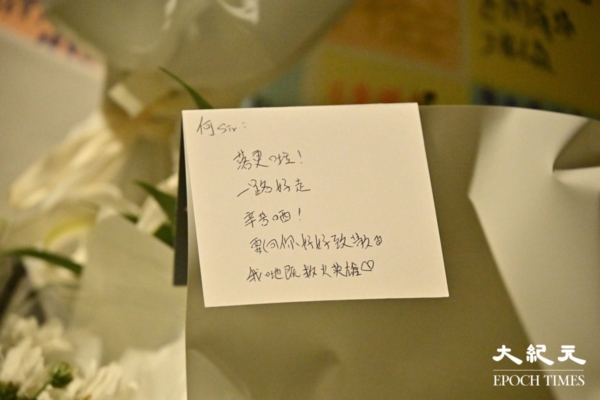 何sir：
落更啦！
一路好走
辛苦哂！
要向你好好致敬
我哋既救火英雄♡
大紀元
EPOCH TIMES